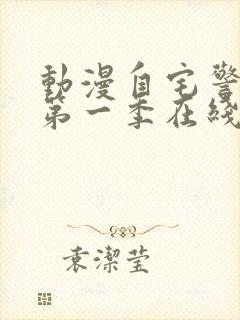 動漫自宅警
第一季在綫
袁潔瑩